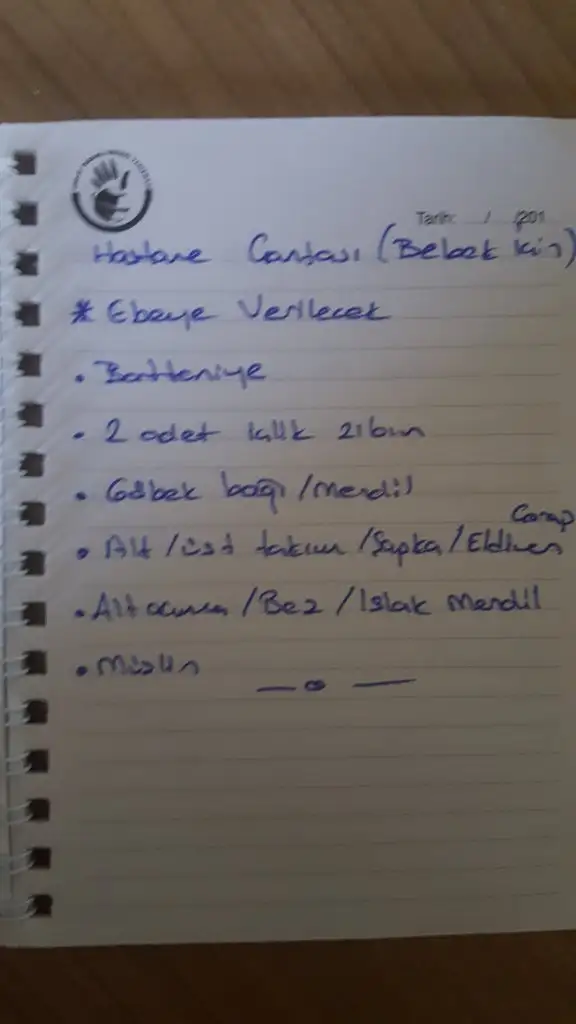 Tarih: / /201
Hastane Çantası (Bebek İçin)
* Ebeye Verilecek
• Battaniye
• 2 adet lık zıbın
• Göbek bağı / Mendil
Çorap
• Alt / üst takım / Şapka / Eldiven
• Alt açma / Bez / Islak Mendil
• Müslin